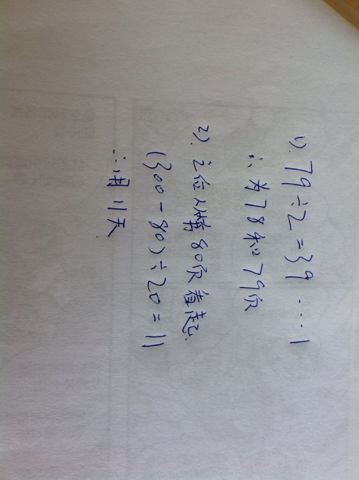 1). 79÷2=39……1
∴为78和79页
2). 之后从第80页看起.
(300-80)÷20=11
∴用11天